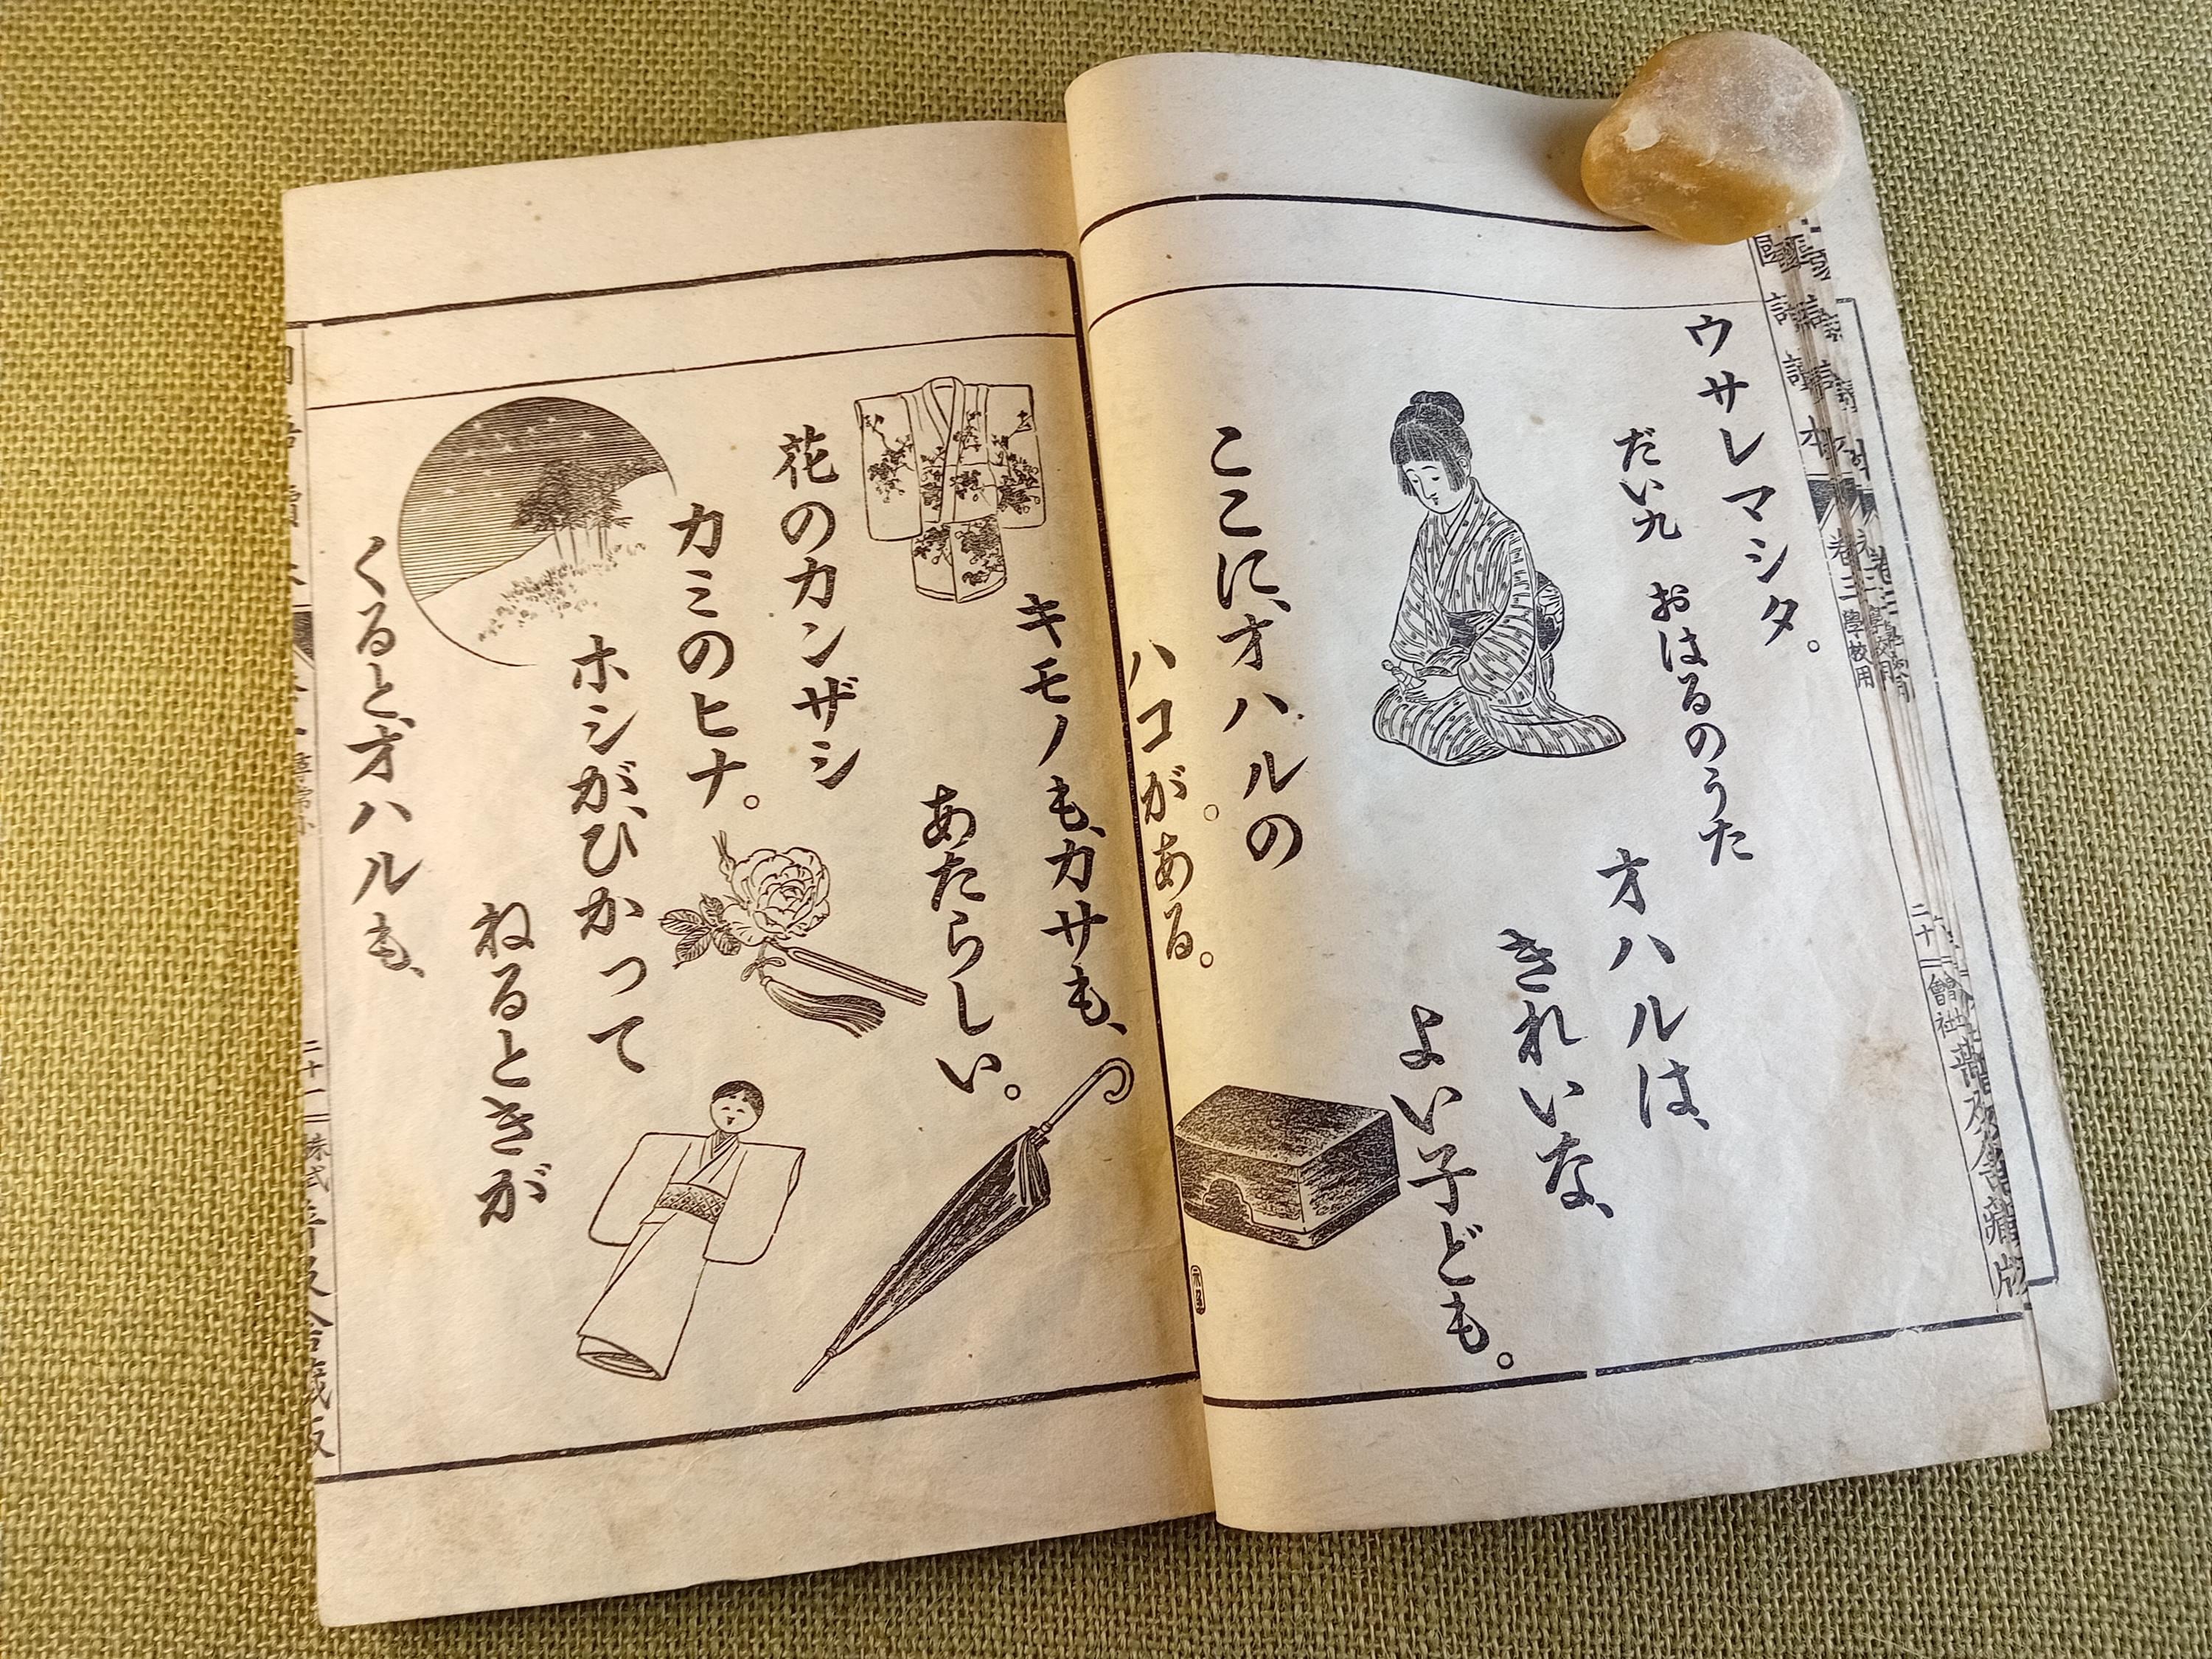 ウサレマシタ。
だい九 おはるのうた
オハルは、
きれいな、
よい子ども。
ここに、オハルの
ハコがある。
キモノも、カサも、
あたらしい。
花のカンザシ
カミのヒナ。
ホシが、ひかって
ねるときが
くると、オハルも、
二十一